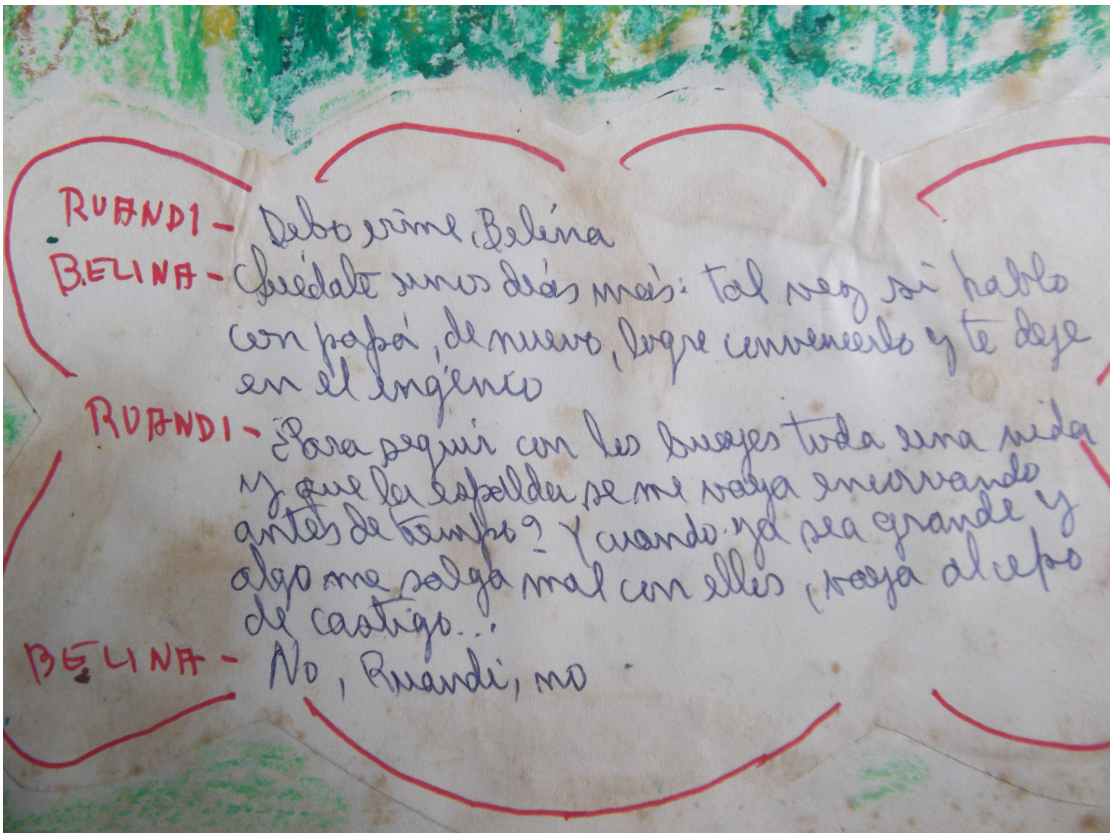 RUANDI- Debo irme, Belina
BELINA- Quédate unos días más: tal vez si hablo
con papá, de nuevo, logre convencerlo y te deje
en el ingenio
RUANDI- ¿Para seguir con los bueyes toda una vida
y que la espalda se me vaya encorvando
antes de tiempo? Y cuando ya sea grande y
algo me salga mal con ellos, vaya al cepo
de castigo...
BELINA- No, Ruandi, no